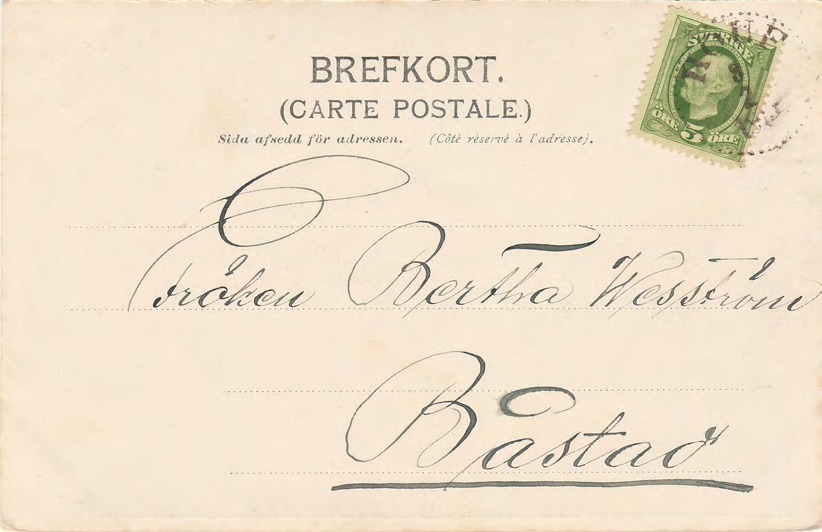 BREFKORT.
(CARTE POSTALE.)
Sida afsedd för adressen. (Côté réservé à l'adresse).
SVERIGE
ÖRE 5 ÖRE
Fröken Bertha Wesström
Båstad